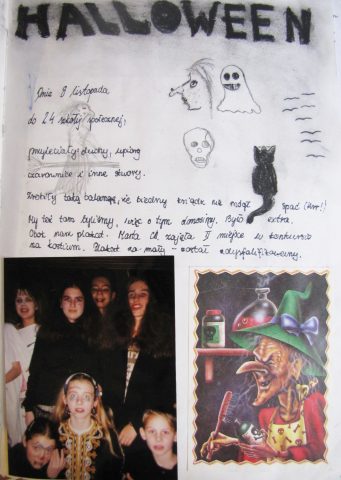 HALLOWEEN
Dnia 8 listopada
do 24 szkoły społecznej,
przyleciały duchy, upiory
czarownice i inne stwory.
Zrobiły taką balangę, że biedny księdz nie mógł spać (Hrr!)
My też tam byliśmy, więc o tym donosimy. Było extra.
Obok nasz plakat. Marta M. zajęła II miejsce w konkursie
na kostium. Plakat na mały - został zdyskalifikowany.